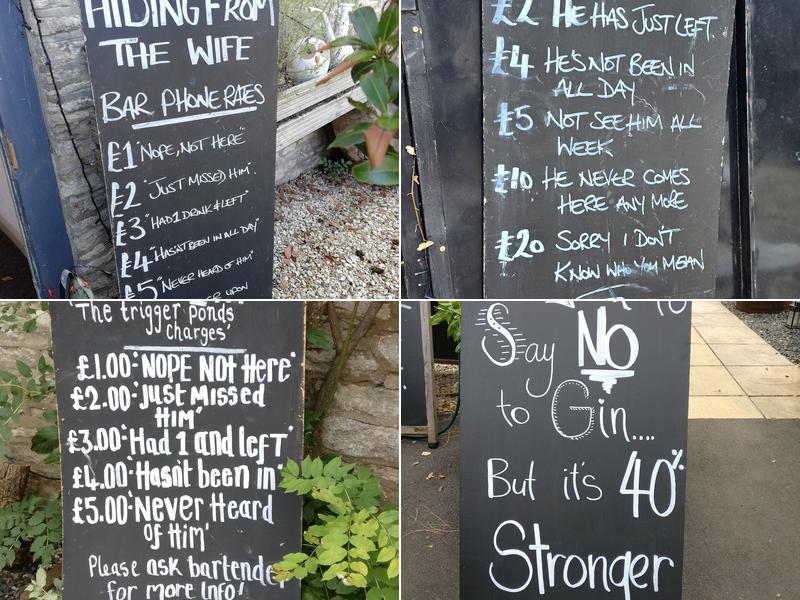 HIDING FROM
THE WIFE
BAR PHONE RATES
£1 "NOPE, NOT HERE"
£2 "JUST MISSED HIM".
£3 "HAD 1 DRINK & LEFT"
£4 "HASN'T BEEN IN ALL DAY"
£5 "NEVER HEARD OF HIM"
UPON
£2 HE HAS JUST LEFT.
£4 HE'S NOT BEEN IN
ALL DAY
£5 NOT SEE HIM ALL
WEEK
£10 HE NEVER COMES
HERE ANY MORE
£20 SORRY I DON'T
KNOW WHO YOU MEAN
"The trigger ponds
charges,"
£1.00-"NOPE NOT Here"
£2.00-"Just Missed
HIM"
£3.00-"Had 1 and left"
£4.00-"Hasn't been in"
£5.00-"Never Heard
of Him'
Please ask bartender
for more Info!
Say No
to Gin....
But it's 40%
Stronger